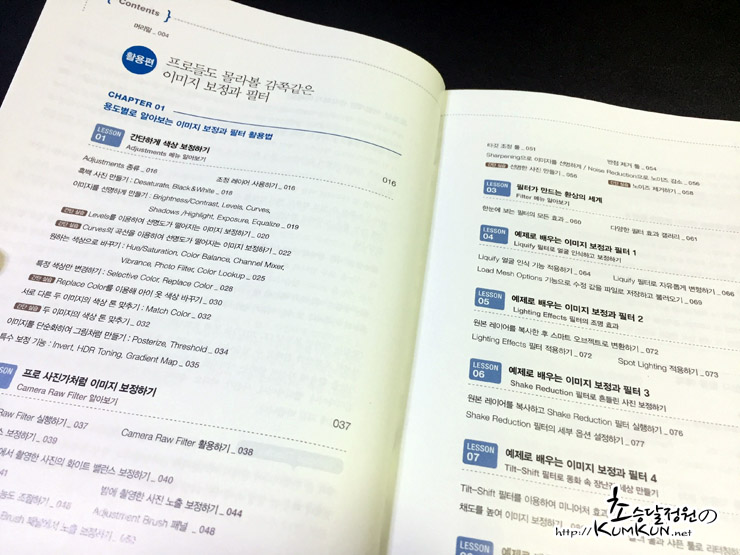 Contents
머리말 _ 004
활용편
프로들도 몰라볼 감쪽같은
이미지 보정과 필터
CHAPTER 01
용도별로 알아보는 이미지 보정과 필터 활용법
LESSON 01 간단하게 색상 보정하기
Adjustments 메뉴 알아보기
016
Adjustments 종류 _ 016 조정 레이어 사용하기 _ 016
흑백 사진 만들기 : Desaturate, Black & White _ 018
이미지를 선명하게 만들기 : Brightness/Contrast, Levels, Curves,
Shadows /Highlight, Exposure, Equalize _ 019
간단 실습 Levels를 이용하여 선명도가 떨어지는 이미지 보정하기 _ 020
간단 실습 Curves의 곡선을 이용하여 선명도가 떨어지는 이미지 보정하기 _ 022
원하는 색상으로 바꾸기 : Hue/Saturation, Color Balance, Channel Mixer,
Vibrance, Photo Filter, Color Lookup _ 025
특정 색상만 변경하기 : Selective Color, Replace Color _ 028
간단 실습 Replace Color를 이용해 아이 옷 색상 바꾸기 _ 030
서로 다른 두 이미지의 색상 톤 맞추기 : Match Color _ 032
간단 실습 두 이미지의 색상 톤 맞추기 _ 032
이미지를 단순화하여 그림처럼 만들기 : Posterize, Threshold _ 034
특수 보정 기능 : Invert, HDR Toning, Gradient Map _ 035
LESSON 프로 사진가처럼 이미지 보정하기
Camera Raw Filter 알아보기
037
Raw Filter 실행하기 _ 037 Camera Raw Filter 활용하기 _ 038
보정하기 _ 039
에서 촬영한 사진의 화이트 밸런스 보정하기 _ 040
041 밤에 촬영한 사진 노출 보정하기 _ 044
농도 조절하기 _ 046 Adjustment Brush 패널 _ 048
Brush 패널에서 노출 보정하기
타깃 조정 툴 _ 051 반점 제거 툴 _ 054
Sharpening으로 이미지를 선명하게 / Noise Reduction으로 노이즈 감소 _ 056
간단 실습 선명한 사진 만들기 _ 056 간단 실습 노이즈 제거하기 _ 058
LESSON 03 필터가 만드는 환상의 세계
Filter 메뉴 알아보기
한눈에 보는 필터의 모든 효과 _ 060 다양한 필터 효과 갤러리 _ 061
LESSON 04 예제로 배우는 이미지 보정과 필터 1
Liquify 필터로 얼굴 인식하고 보정하기
Liquify 얼굴 인식 기능 적용하기 _ 064 Liquify 필터로 자유롭게 변형하기 _ 066
Load Mesh Options 기능으로 수정 값을 파일로 저장하고 불러오기 _ 069
LESSON 05 예제로 배우는 이미지 보정과 필터 2
Lighting Effects 필터의 조명 효과
원본 레이어를 복사한 후 스마트 오브젝트로 변환하기 _ 072
Lighting Effects 필터 적용하기 _ 072 Spot Lighting 적용하기 _ 073
LESSON 06 예제로 배우는 이미지 보정과 필터 3
Shake Reduction 필터로 흔들린 사진 보정하기
원본 레이어를 복사하고 Shake Reduction 필터 실행하기 _ 076
Shake Reduction 필터의 세부 옵션 설정하기 _ 077
LESSON 07 예제로 배우는 이미지 보정과 필터 4
Tilt-Shift 필터로 동화 속 장난감 세상 만들기
Tilt-Shift 필터를 이용하여 미니어처 효과
채도를 높여 이미지 보정하기
LESSON
초승달정원の
http://KUMKUN.net